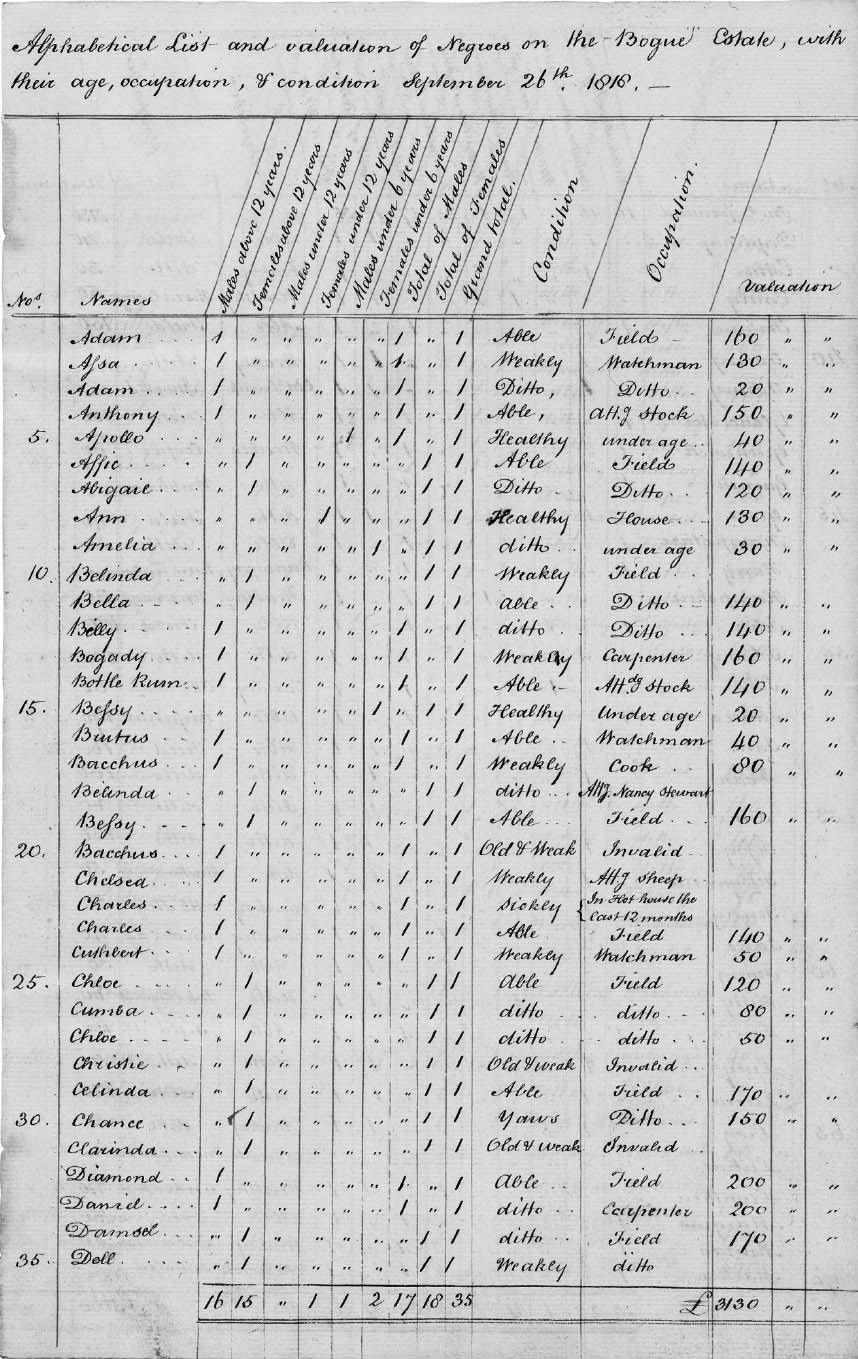 Alphabetical List and valuation of Negroes on the Bogue Estate, with
their age, occupation, & condition September 26th. 1818. —
Nos. Names Males above 12 years. Females above 12 years Males under 12 years Females under 12 years Males under 6 years Females under 6 years Total of Males Total of Females Grand total. Condition Occupation. Valuation
Adam 1 " " " " " 1 " 1 Able Field 160 " "
Assa 1 " " " " " 1 " 1 Weakly Watchman 130 " "
Adam 1 " " " " " 1 " 1 Ditto, Ditto 20 " "
Anthony 1 " " " " " 1 " 1 Able, Att.g Stock 150 " "
5. Apollo " " " " 1 " 1 " 1 Healthy under age 40 " "
Affie " 1 " " " " " 1 1 Able Field 140 " "
Abigail " 1 " " " " " 1 1 Ditto Ditto 120 " "
Ann " " " 1 " " " 1 1 Healthy House 130 " "
Amelia " " " " " 1 " 1 1 ditto under age 30 " "
10. Belinda " 1 " " " " " 1 1 Weakly Field
Bella " 1 " " " " " 1 1 able Ditto 140 " "
Billy 1 " " " " " 1 " 1 ditto Ditto 140 " "
Bogady 1 " " " " " 1 " 1 Weakly Carpenter 160 " "
Bottle Rum 1 " " " " " 1 " 1 Able Attdg Stock 140 " "
15. Bessy " " " " " 1 " 1 1 Healthy Under age 20 " "
Brutus 1 " " " " " 1 " 1 Able Watchman 40 " "
Bacchus 1 " " " " " 1 " 1 Weakly Cook 80 " "
Belinda " 1 " " " " " 1 1 ditto Att.g Nancy Stewart
Bessy " 1 " " " " " 1 1 Able Field 160 " "
20. Bacchus 1 " " " " " 1 " 1 Old & Weak Invalid
Chelsea 1 " " " " " 1 " 1 Weakly Att.g Sheep
Charles 1 " " " " " 1 " 1 Sickly { In Hot house the
last 12 months
Charles 1 " " " " " 1 " 1 Able Field 140 " "
Cuthbert 1 " " " " " 1 " 1 Weakly Watchman 50 " "
25. Chloe " 1 " " " " " 1 1 Able Field 120 " "
Cumba " 1 " " " " " 1 1 ditto ditto 80 " "
Chloe " 1 " " " " " 1 1 ditto ditto 50 " "
Christie " 1 " " " " " 1 1 Old & weak Invalid
Celinda " 1 " " " " " 1 1 Able Field 170 " "
30. Chance " 1 " " " " " 1 1 Yaws Ditto 150 " "
Clarinda " 1 " " " " " 1 1 Old & weak Invalid
Diamond 1 " " " " " 1 " 1 Able Field 200 " "
Daniel 1 " " " " " 1 " 1 ditto Carpenter 200 " "
Damsel " 1 " " " " " 1 1 ditto Field 170 " "
35. Doll " 1 " " " " " 1 1 Weakly ditto
16 15 " 1 1 2 17 18 35 £ 3130 " "